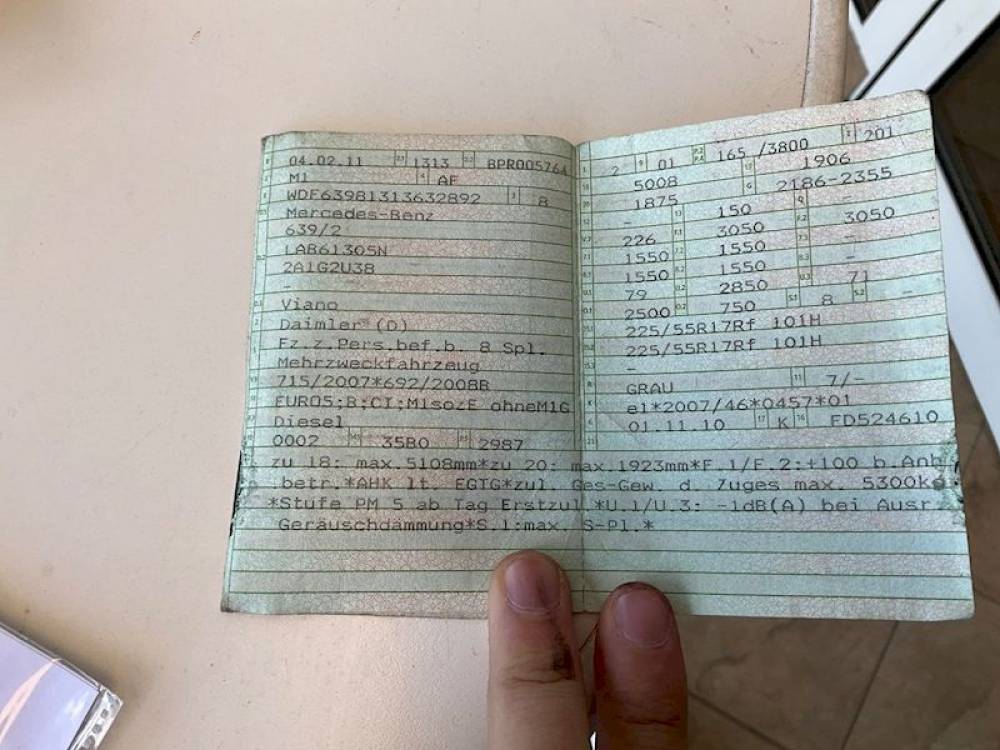 04.02.11 1313 BPR005764
M1 AF
WDF63981313632892 8
Mercedes-Benz
639/2
LAB61305N
2A1G2U38
-
Viano
Daimler (D)
Fz.z.Pers.bef.b. 8 Spl.
Mehrzweckfahrzeug
715/2007*692/2008B
EURO5;B;CI;M1sozE ohneM1G
Diesel
0002 35B0 2987
2 01 165 /3800 201
5008 1906
1875 2186-2355
- 150
226 3050 3050
1550 1550 -
1550 1550 -
79 2850 71
2500 750 8 -
225/55R17Rf 101H
225/55R17Rf 101H
-
GRAU 7/-
e1*2007/46*0457*01
01.11.10 K FD524610
zu 18: max.5108mm*zu 20: max.1923mm*F.1/F.2:+100 b.Anh
betr.*AHK lt. EGTG*zul. Ges-Gew. d. Zuges max. 5300kg
*Stufe PM 5 ab Tag Erstzul.*U.1/U.3: -1dB(A) bei Ausr.
Geräuschdämmung*S.1:max. S-Pl.*